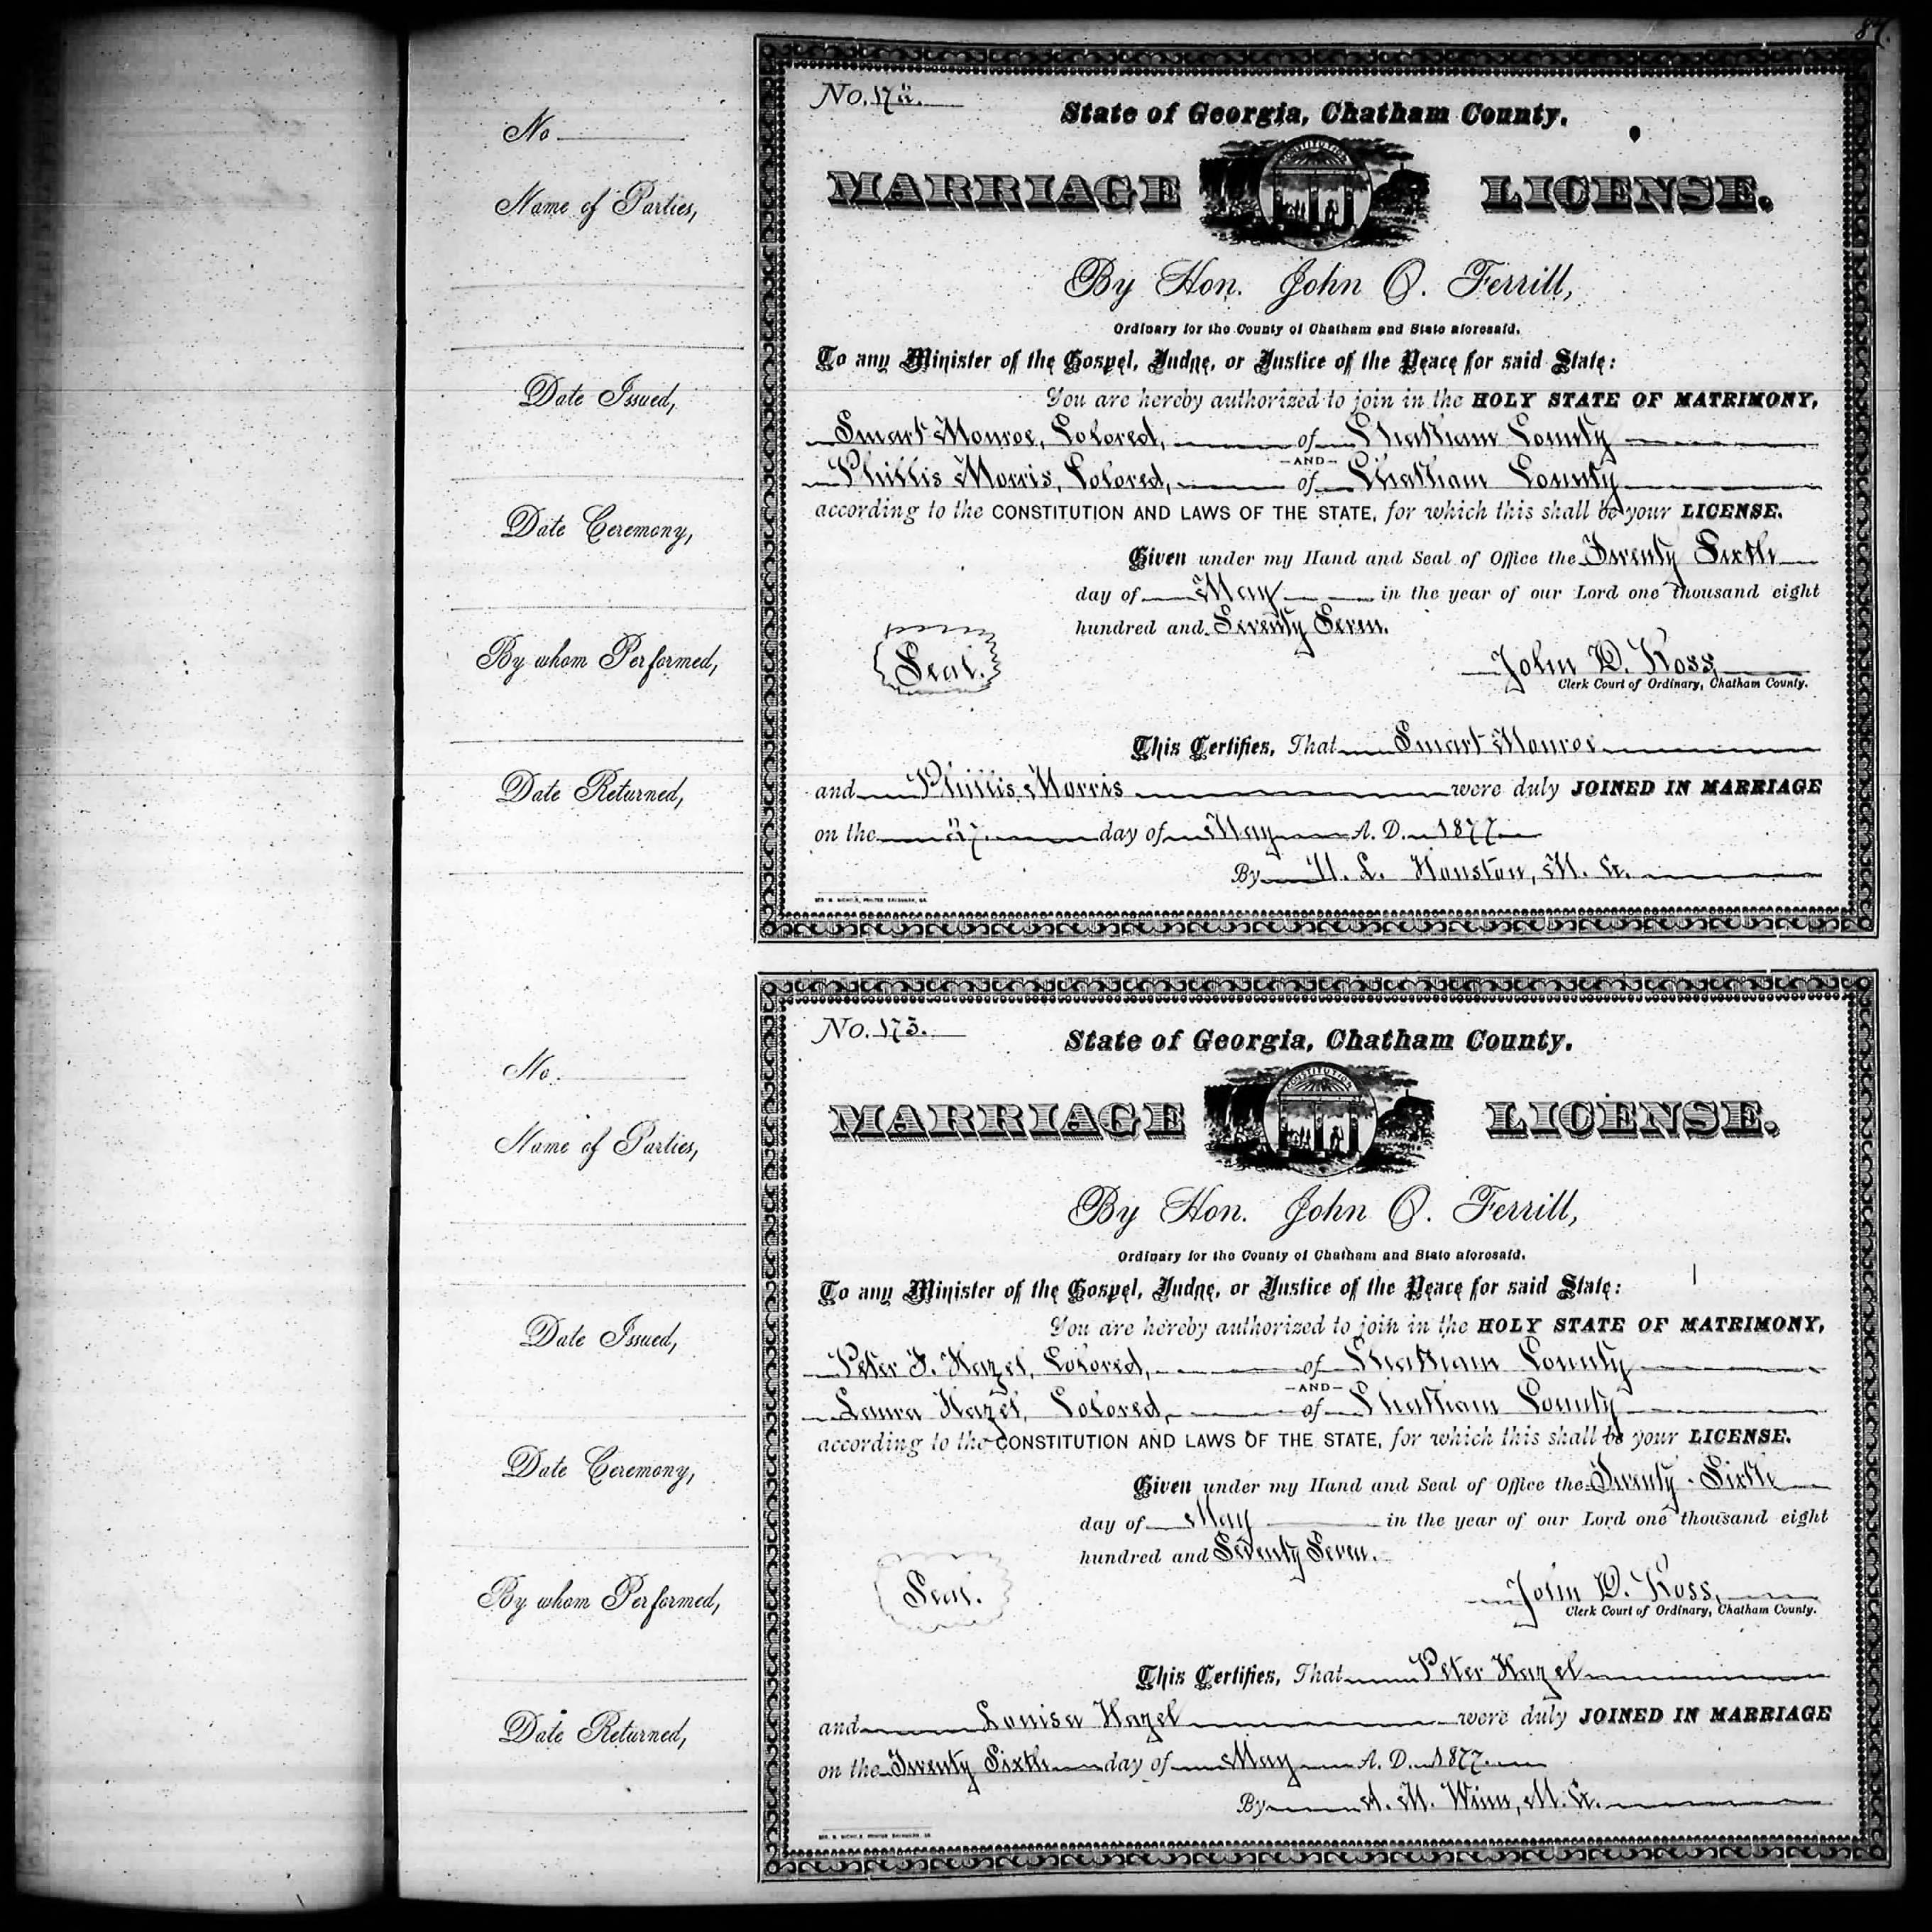 87.
No
Name of Parties,
Date Issued,
Date Ceremony,
By whom Performed,
Date Returned,
No. 172.
State of Georgia, Chatham County.
CONSTITUTION
MARRIAGE LICENSE.
By Hon. John O. Ferrill,
Ordinary for the County of Chatham and State aforesaid.
To any Minister of the Gospel, Judge, or Justice of the Peace for said State:
You are hereby authorized to join in the HOLY STATE OF MATRIMONY,
Smart Monroe, Colored, of Chatham County
-AND-
Phillis Morris, Colored, of Chatham County
according to the CONSTITUTION AND LAWS OF THE STATE, for which this shall be your LICENSE.
Given under my Hand and Seal of Office the Twenty Sixth
day of May in the year of our Lord one thousand eight
hundred and Seventy Seven.
Seal.
John D. Ross,
Clerk Court of Ordinary, Chatham County.
This Certifies, That Smart Monroe
and Phillis Morris were duly JOINED IN MARRIAGE
on the 27. day of May A. D. 1877.
By U. L. Houston, M. G.
GEO. N. NICHOLS, PRINTER, SAVANNAH, GA.
No.
Name of Parties,
Date Issued,
Date Ceremony,
By whom Performed,
Date Returned,
No. 173.
State of Georgia, Chatham County.
CONSTITUTION
MARRIAGE LICENSE.
By Hon. John O. Ferrill,
Ordinary for the County of Chatham and State aforesaid.
To any Minister of the Gospel, Judge, or Justice of the Peace for said State:
You are hereby authorized to join in the HOLY STATE OF MATRIMONY,
Peter F. Hazel, Colored, of Chatham County
-AND-
Laura Hazel, Colored, of Chatham County
according to the CONSTITUTION AND LAWS OF THE STATE, for which this shall be your LICENSE.
Given under my Hand and Seal of Office the Twenty-Sixth
day of May in the year of our Lord one thousand eight
hundred and Seventy Seven.
Seal.
John D. Ross,
Clerk Court of Ordinary, Chatham County.
This Certifies, That Peter Hazel
and Louisa Hazel were duly JOINED IN MARRIAGE
on the Twenty Sixth day of May A. D. 1877.
By A. M. Winn, M. G.
GEO. N. NICHOLS, PRINTER, SAVANNAH, GA.